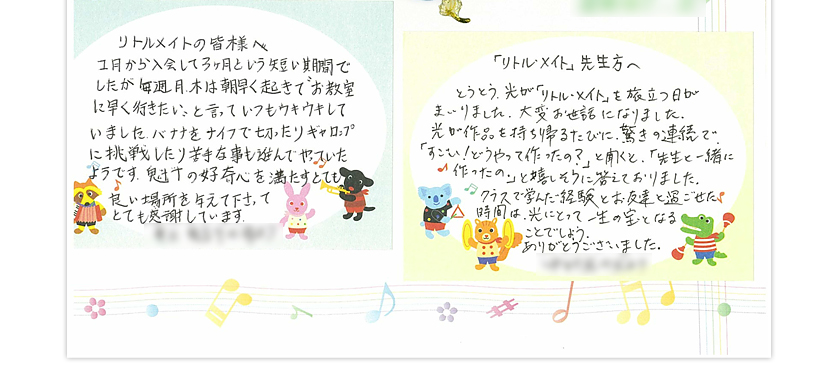 リトルメイトの皆様へ
1月から入会して3ヶ月という短い期間で
したが毎週月.木は朝早く起きて「お教室
に早く行きたい」と言っていつもウキウキして
いました.バナナをナイフで切ったりギャロップ
に挑戦したり苦手な事も進んでやっていた
ようです.の好奇心を満たすとても
良い場所を与えて下さって
とても感謝しています.
「リトル・メイト」先生方へ
とうとう、光が「リトル・メイト」を旅立つ日が
まいりました。大変お世話になりました。
光が作品を持ち帰るたびに、驚きの連続で、
「すごい!どうやって作ったの?」と聞くと、「先生と一緒に
作ったの」と嬉しそうに答えておりました。
クラスで学んだ経験とお友達と過ごせた
時間は、光にとって一生の宝となる
ことでしょう。
ありがとうございました。